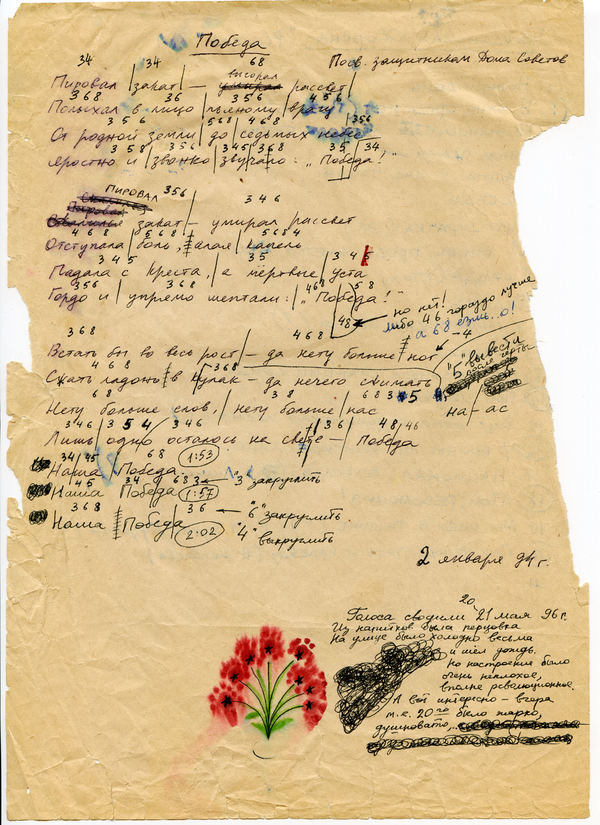 Победа
Посв. защитникам Дома Советов
34 34 68
выгорал
Пировал закат — умирал рассвет
368 36 356 456
Полыхал в лицо пьяному врагу
356 568 468 356
От родной земли до седьмых небес
358 356 345 368 35 34
Яростно и звонко звучало: „Победа!"
пировал 356 346
Пировал
закат — умирал рассвет
468 568 5684
Отступала боль, алая капель
345 35 345
Падала с креста, а мёртвые уста
356 368 468 58
Гордо и упрямо шептали: „Победа!"
48 но нет!
либо 46 гораздо лучше
а 68 езчь..о!
368 468 -4
Встать бы во весь рост — да нету больше ног
"5" вывести
после черты
468 368
Сжать ладонь в кулак — да нечего сжимать
68 38 683 5
Нету больше слов, нету больше нас на-ас
346 354 346 36 48/46
Лишь одно осталось на свете — Победа
34 45 68 1:53
Наша Победа
45 34 683 ← "3" закруглить
Наша Победа 1:57
368 36 ← "6" закруглить
Наша Победа
2:02 "4" выкруглить
2 января 94 г.
20
Голоса сводили 21 мая 96 г.
Из напитков была перцовка
На улице было холодно весьма
и шёл дождь.
Но настроение было
очень неплохое,
вполне революционное.
А вот интересно — вчера
т.е. 20го было жарко,
душновато,..